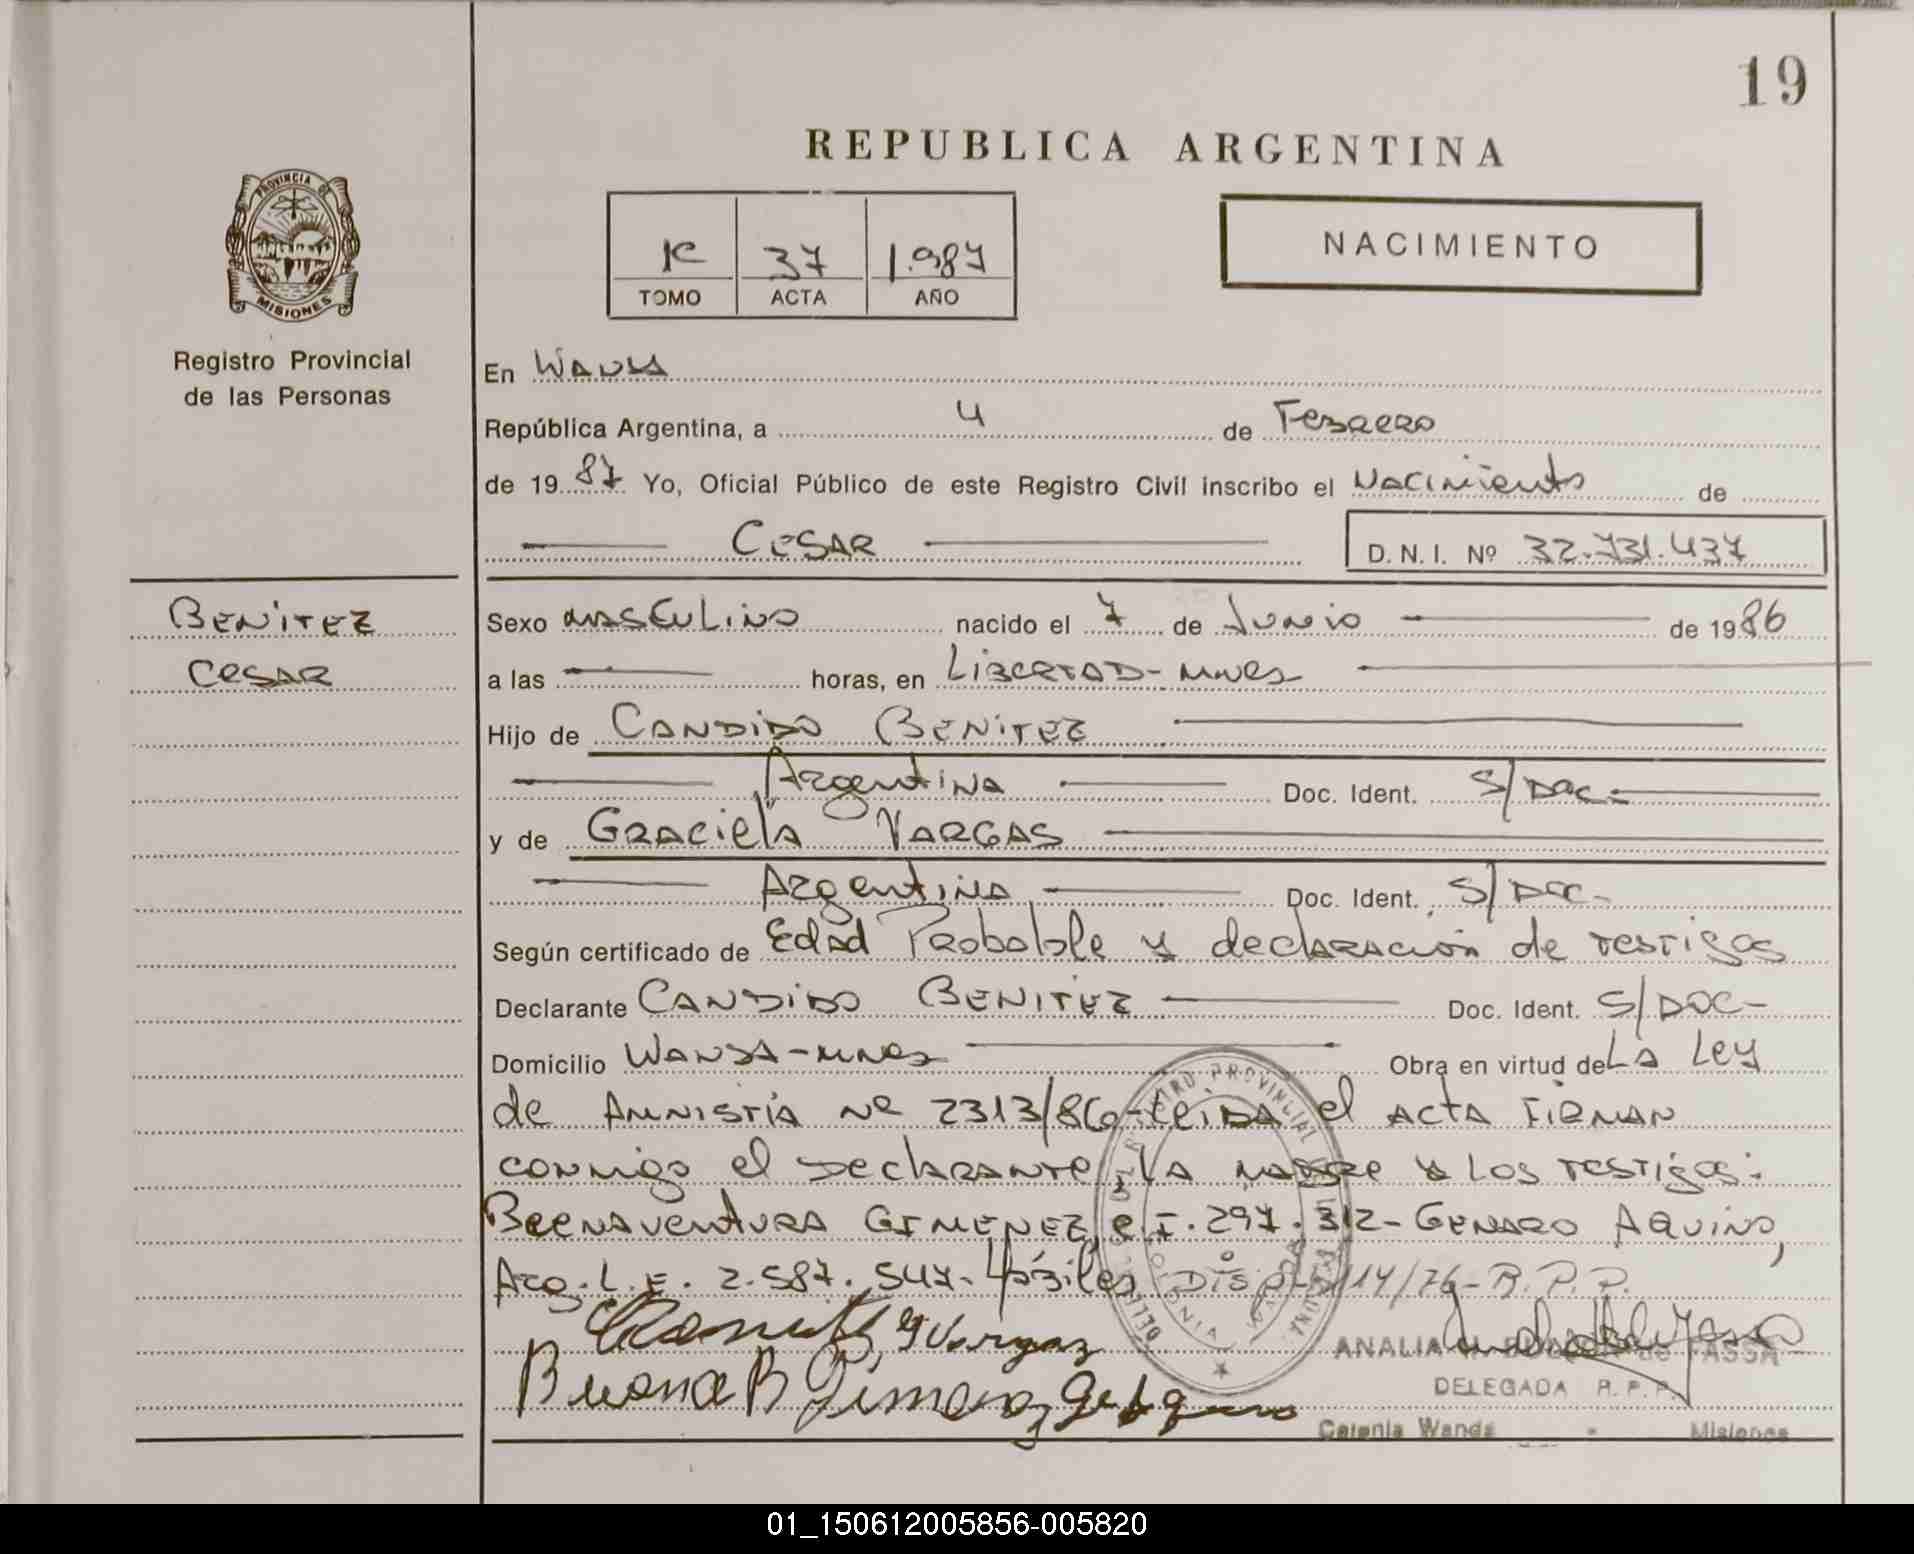 19
REPUBLICA ARGENTINA
PROVINCIA DE
MISIONES
Registro Provincial
de las Personas
K 37 1.987
TOMO ACTA AÑO
NACIMIENTO
En WANDA
República Argentina, a 4 de Febrero
de 1987 Yo, Oficial Público de este Registro Civil inscribo el Nacimiento de
CESAR D.N.I. Nº 32.731.437
BENITEZ
CESAR
Sexo MASCULINO nacido el 7 de Junio de 1986
a las horas, en LIBERTAD-MNES
Hijo de CANDIDO BENITEZ
Argentina Doc. Ident. S/DOC-
y de GRACIELA VARGAS
Argentina Doc. Ident. S/DOC-
Según certificado de Edad Probable y declaración de testigos
Declarante CANDIDO BENITEZ Doc. Ident. S/DOC-
Domicilio WANDA-MNES Obra en virtud de LA Ley
de AMNISTIA Nº 2313/86-LEIDA el ACTA FIRMAN
conmigo el DeclaRANTe, LA MADRE y LOS TESTIGOS:
BUENAVENTURA GIMENEZ, C.I. 297.312-GENARO AQUINO,
Arg. L.E. 2.587.547- Disp. 114/76-R.P.P.
G Vargas
Buena B Gimenez
ANALIA de FASSA
DELEGADA R.P.P.
Colonia Wanda - Misiones
01_150612005856-005820